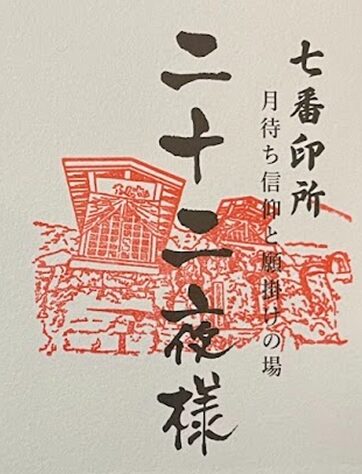 七番印所
月待ち信仰と願掛けの場
二十二夜様